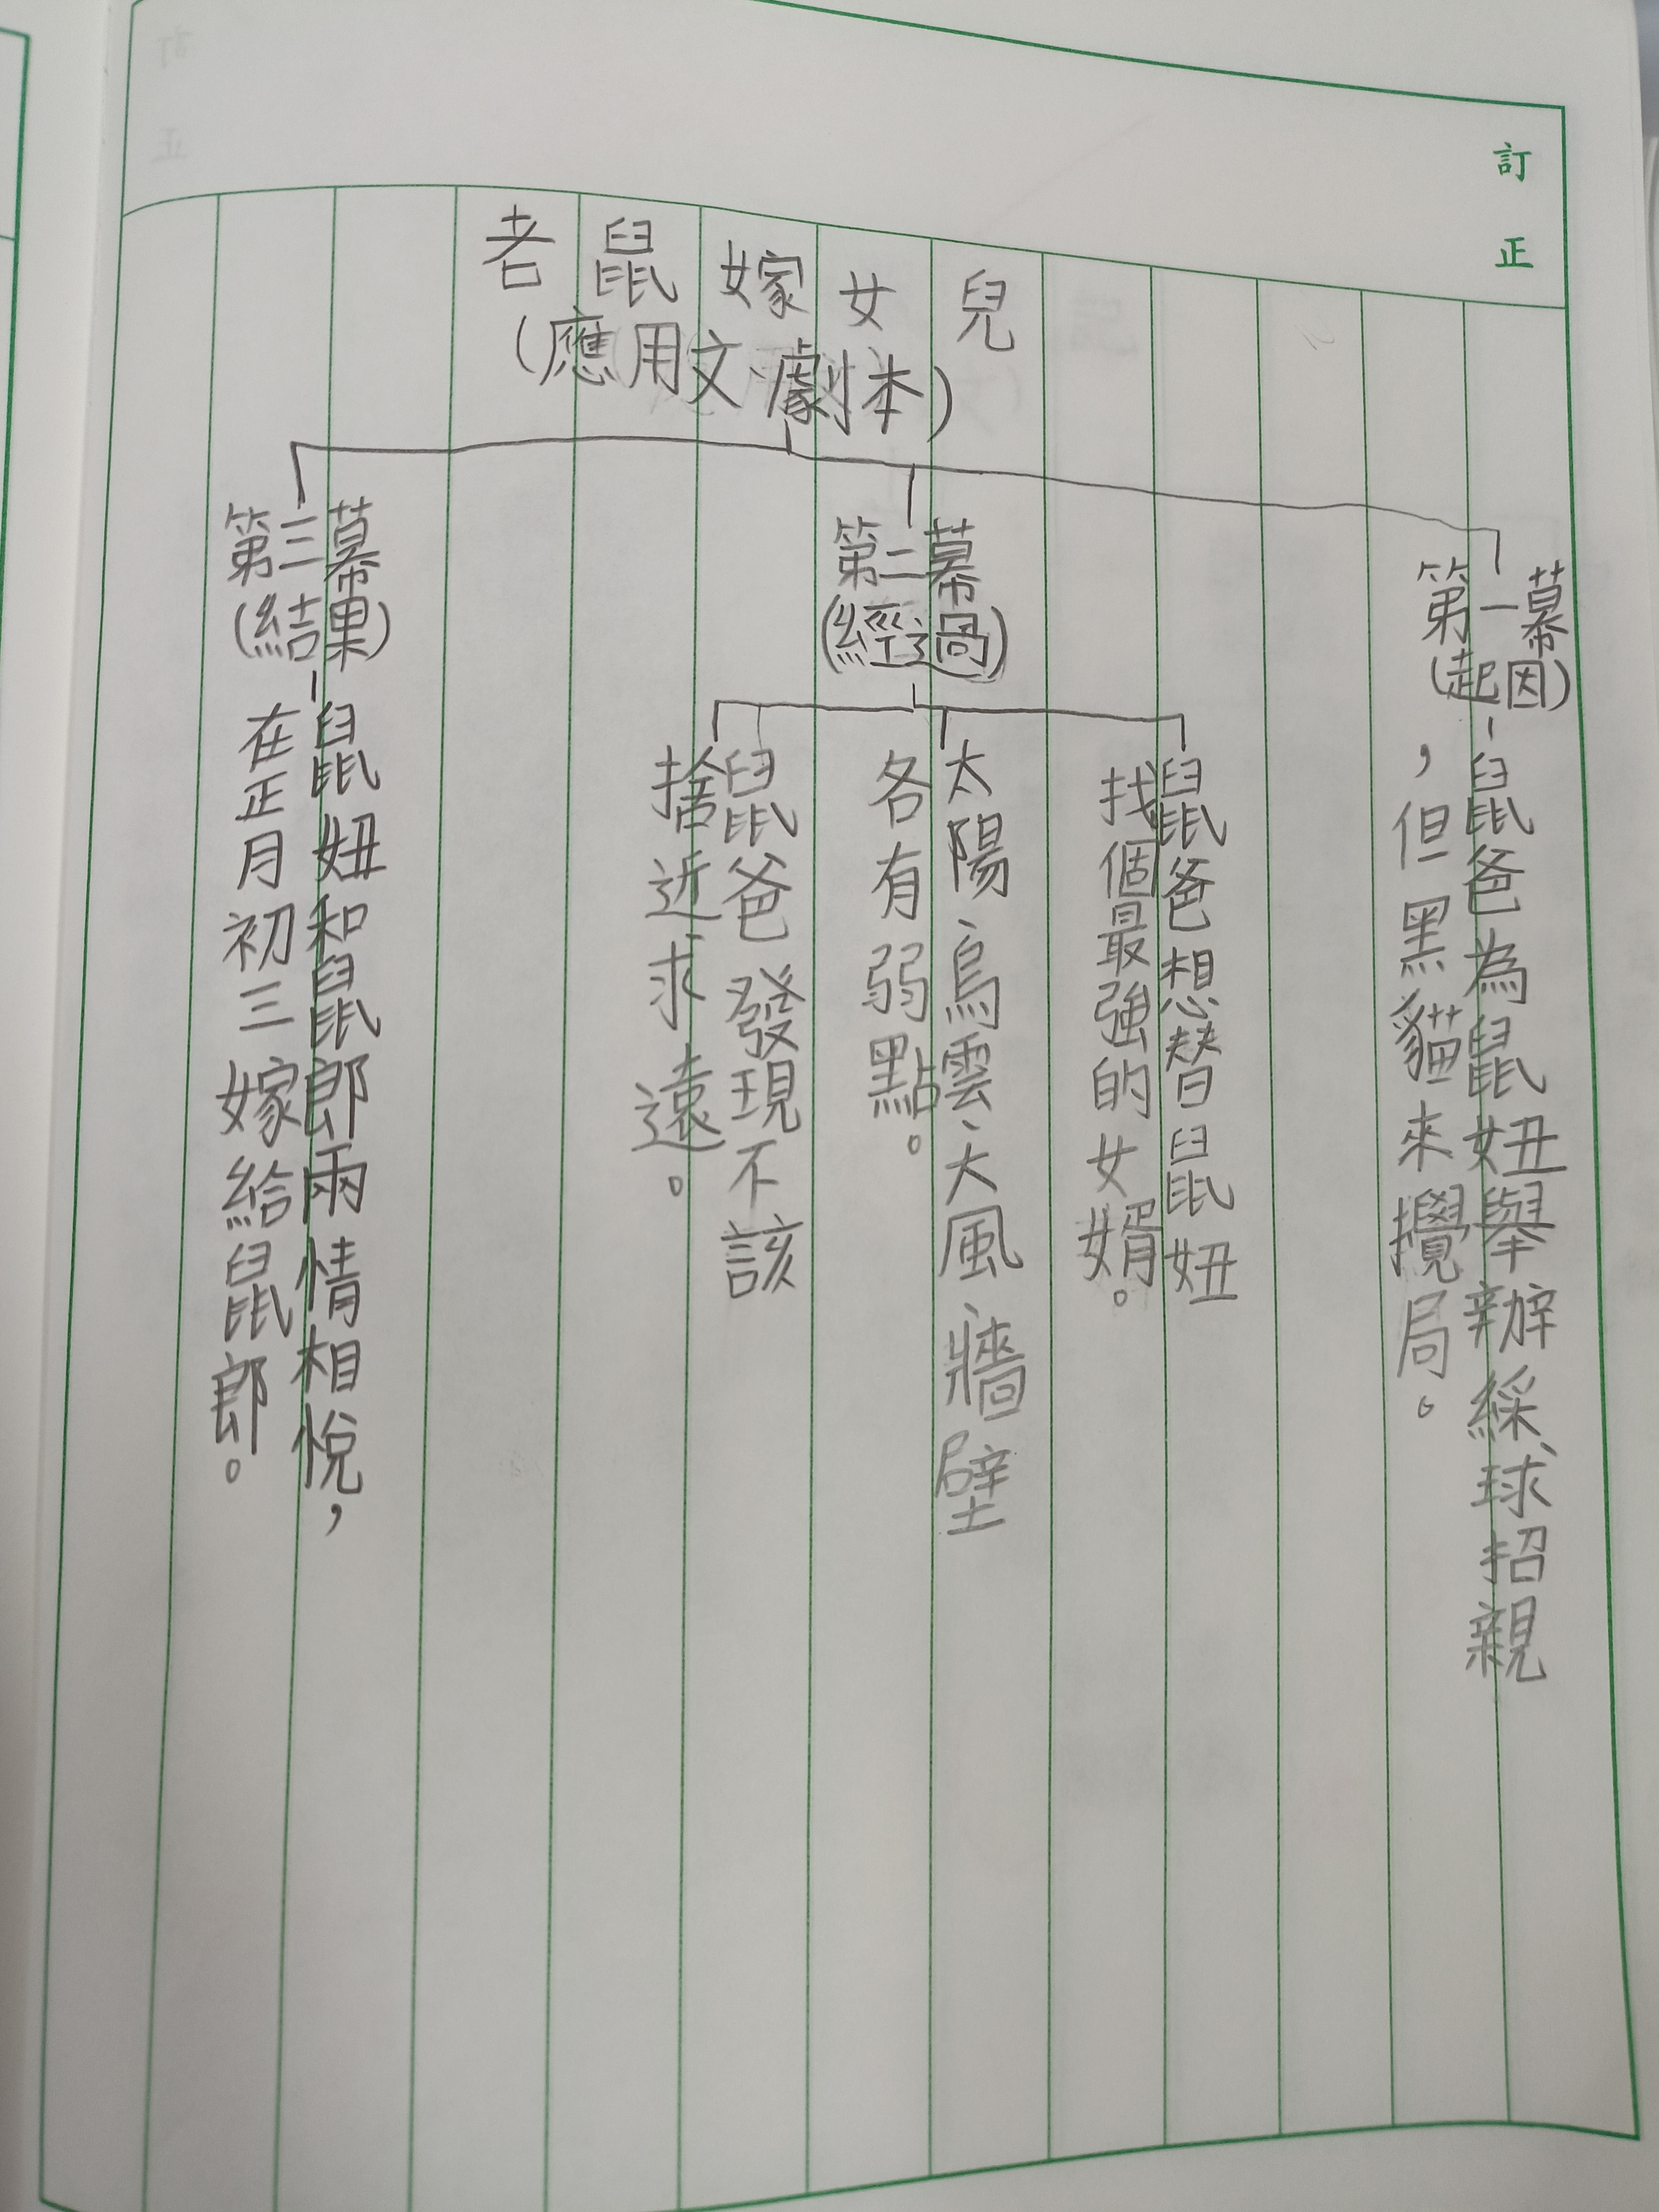 訂正
老鼠嫁女兒
(應用文、劇本)
第一幕
(起因)
鼠爸為鼠妞舉辦綵球招親
，但黑貓來攪局。
第二幕
(經過)
鼠爸想替鼠妞
找個最強的女婿。
太陽、烏雲、大風、牆壁
各有弱點。
鼠爸發現不該
捨近求遠。
第三幕
(結果)
鼠妞和鼠郎兩情相悅，
在正月初三嫁給鼠郎。